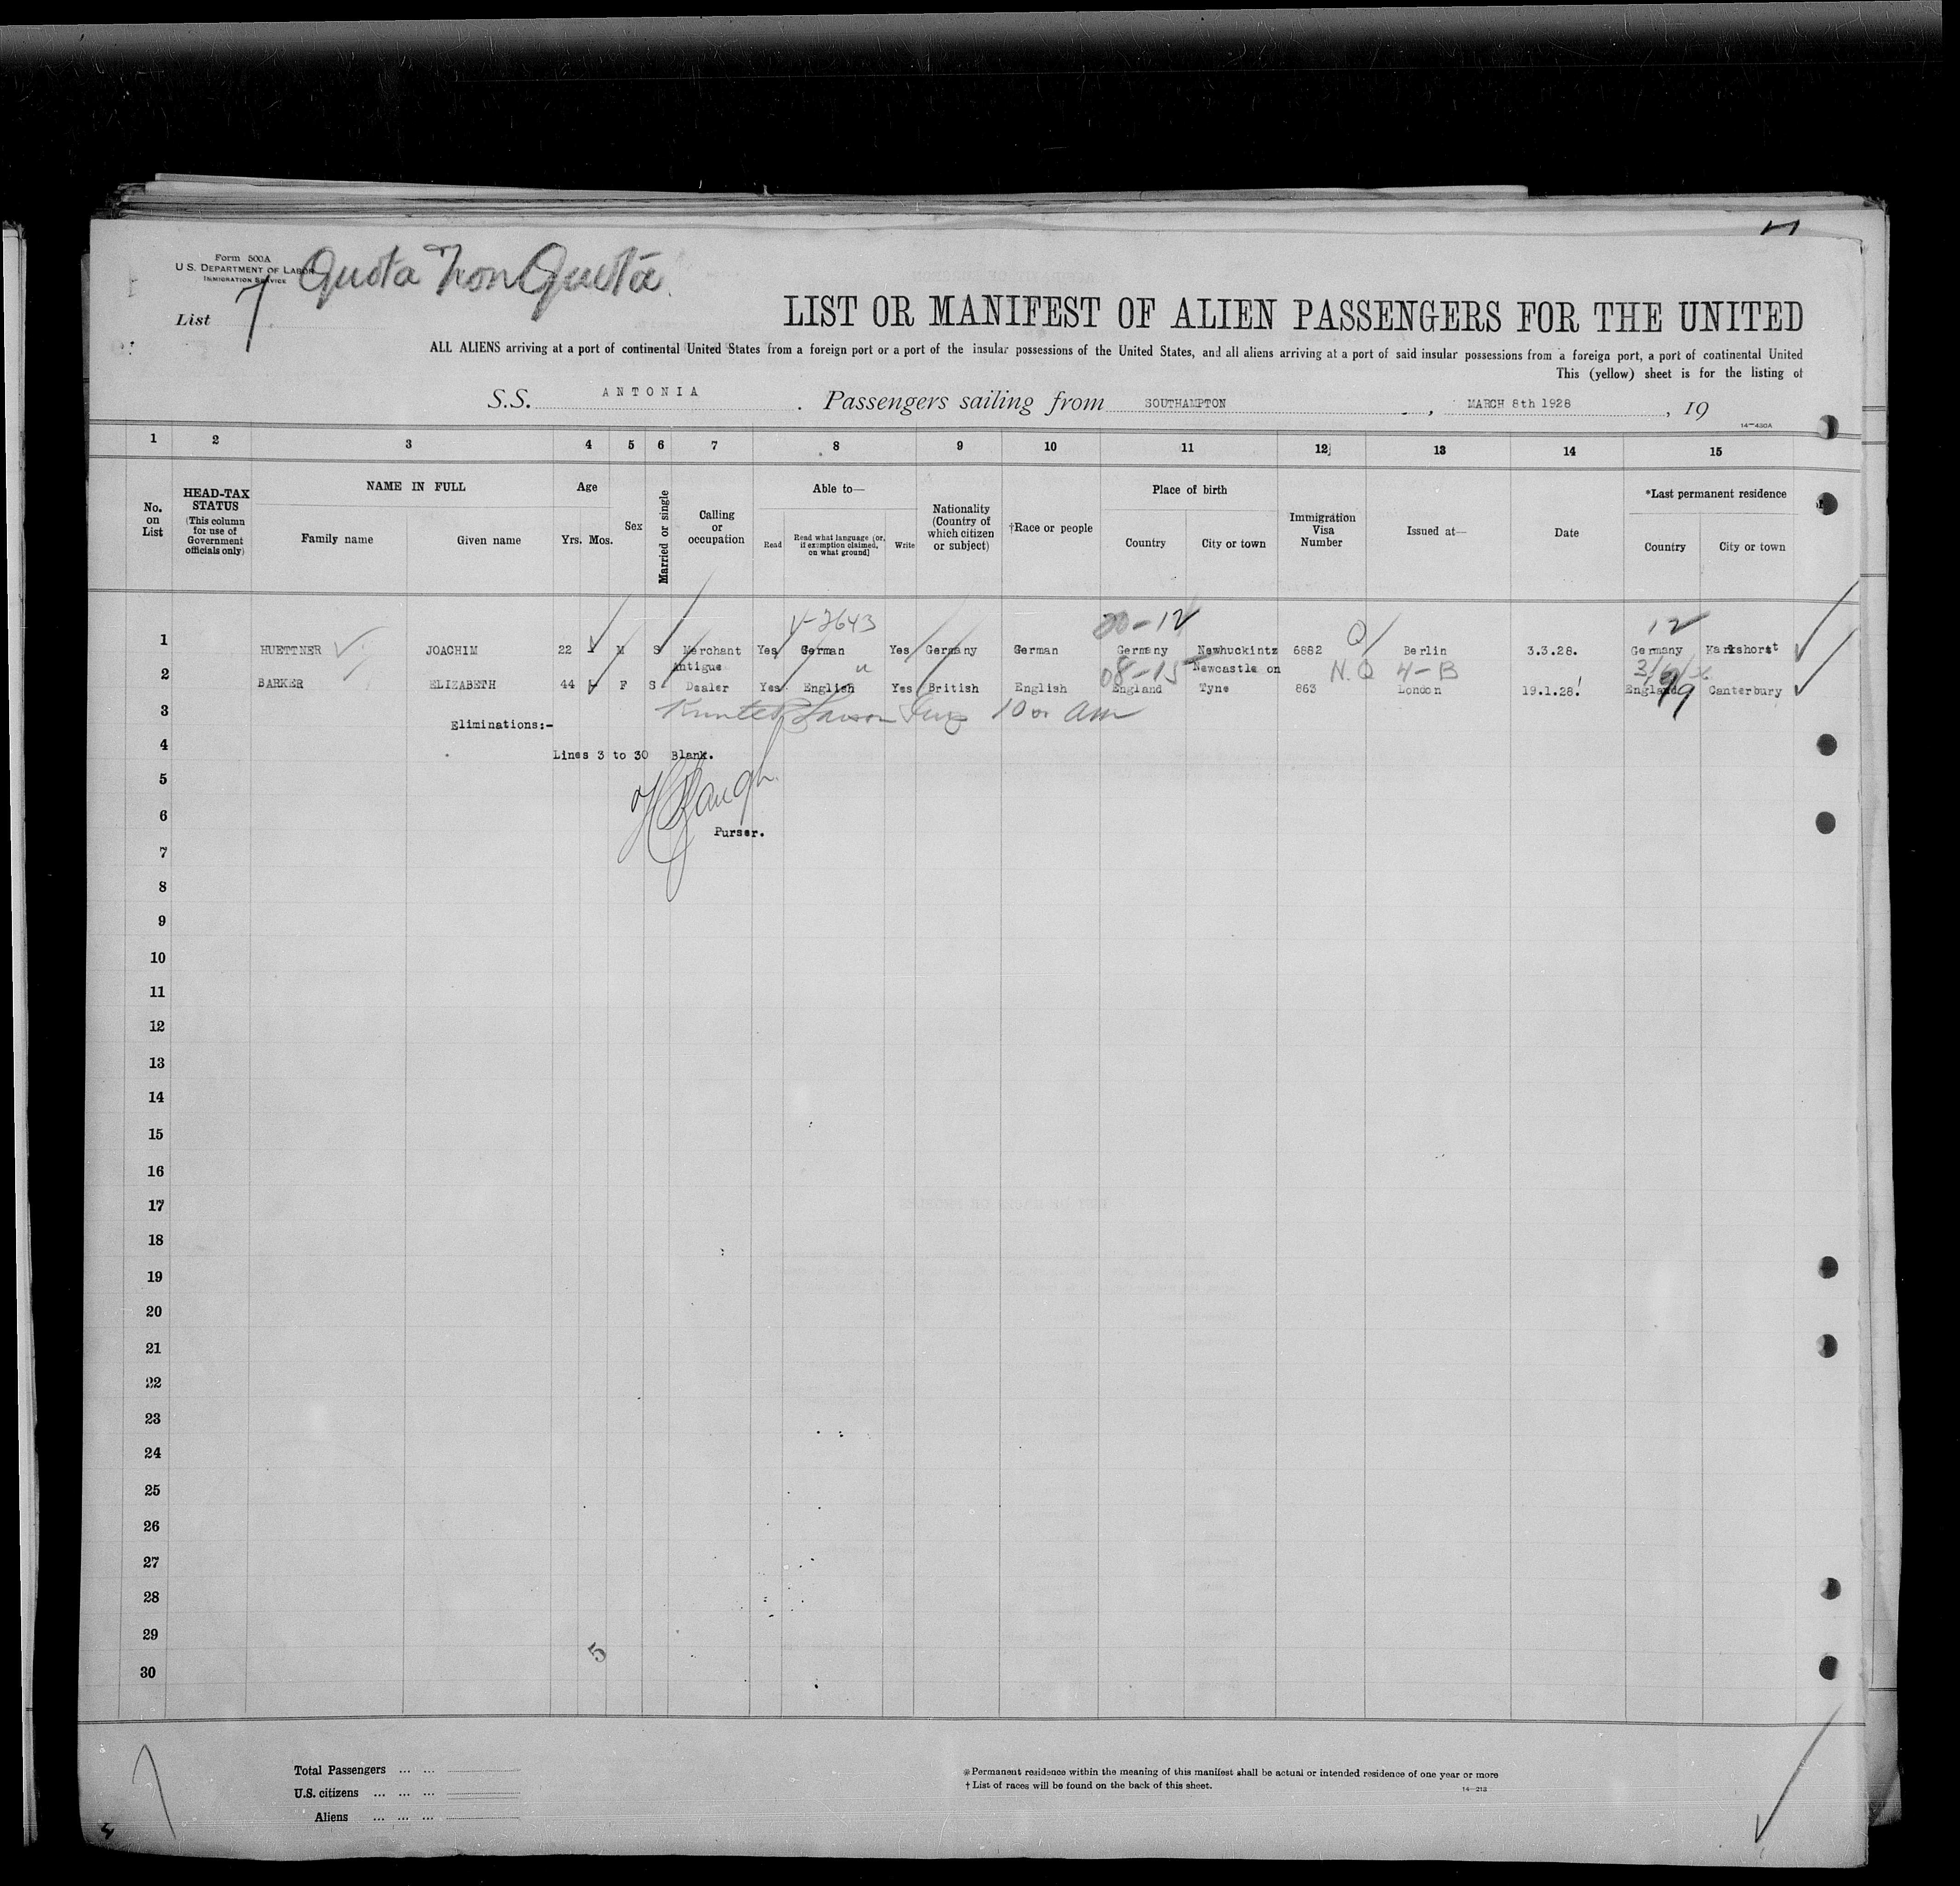 Form 500A
U. S. DEPARTMENT OF LABOR
IMMIGRATION SERVICE
Quota Non Quota
List 7
LIST OR MANIFEST OF ALIEN PASSENGERS FOR THE UNITED
ALL ALIENS arriving at a port of continental United States from a foreign port or a port of the insular possessions of the United States, and all aliens arriving at a port of said insular possessions from a foreign port, a port of continental United
This (yellow) sheet is for the listing of
S.S. ANTONIA. Passengers sailing from SOUTHAMPTON, MARCH 8th 1928, 19
14—430A
1 2 3 4 5 6 7 8 9 10 11 12 13 14 15
No. on List
HEAD-TAX STATUS (This column for use of Government officials only)
NAME IN FULL
Family name Given name
Age
Yrs. Mos.
Sex
Married or single
Calling or occupation
Able to—
Read
Read what language [or, if exemption claimed, on what ground]
Write
Nationality (Country of which citizen or subject)
†Race or people
Place of birth
Country City or town
Immigration Visa Number
Issued at—
Date
*Last permanent residence
Country City or town
V-2643 20-12 Q 12
1 HUETTNER JOACHIM 22 M S Merchant Yes German Yes Germany German Germany Newhuckintz 6882 Berlin 3.3.28. Germany Karlshorst
08-15 N.Q 4-B
2 BARKER ELIZABETH 44 F S Antigue Dealer Yes English Yes British English England Newcastle on Tyne 863 London 19.1.28. England Canterbury
99
3
Eliminations:-
4
Lines 3 to 30 Blank.
5
6
Purser.
7
8
9
10
11
12
13
14
15
16
17
18
19
20
21
22
23
24
25
26
27
28
29
5
30
Total Passengers ... ...
U.S. citizens ... ... ...
Aliens ... ... ...
*Permanent residence within the meaning of this manifest shall be actual or intended residence of one year or more
† List of races will be found on the back of this sheet.
14—213